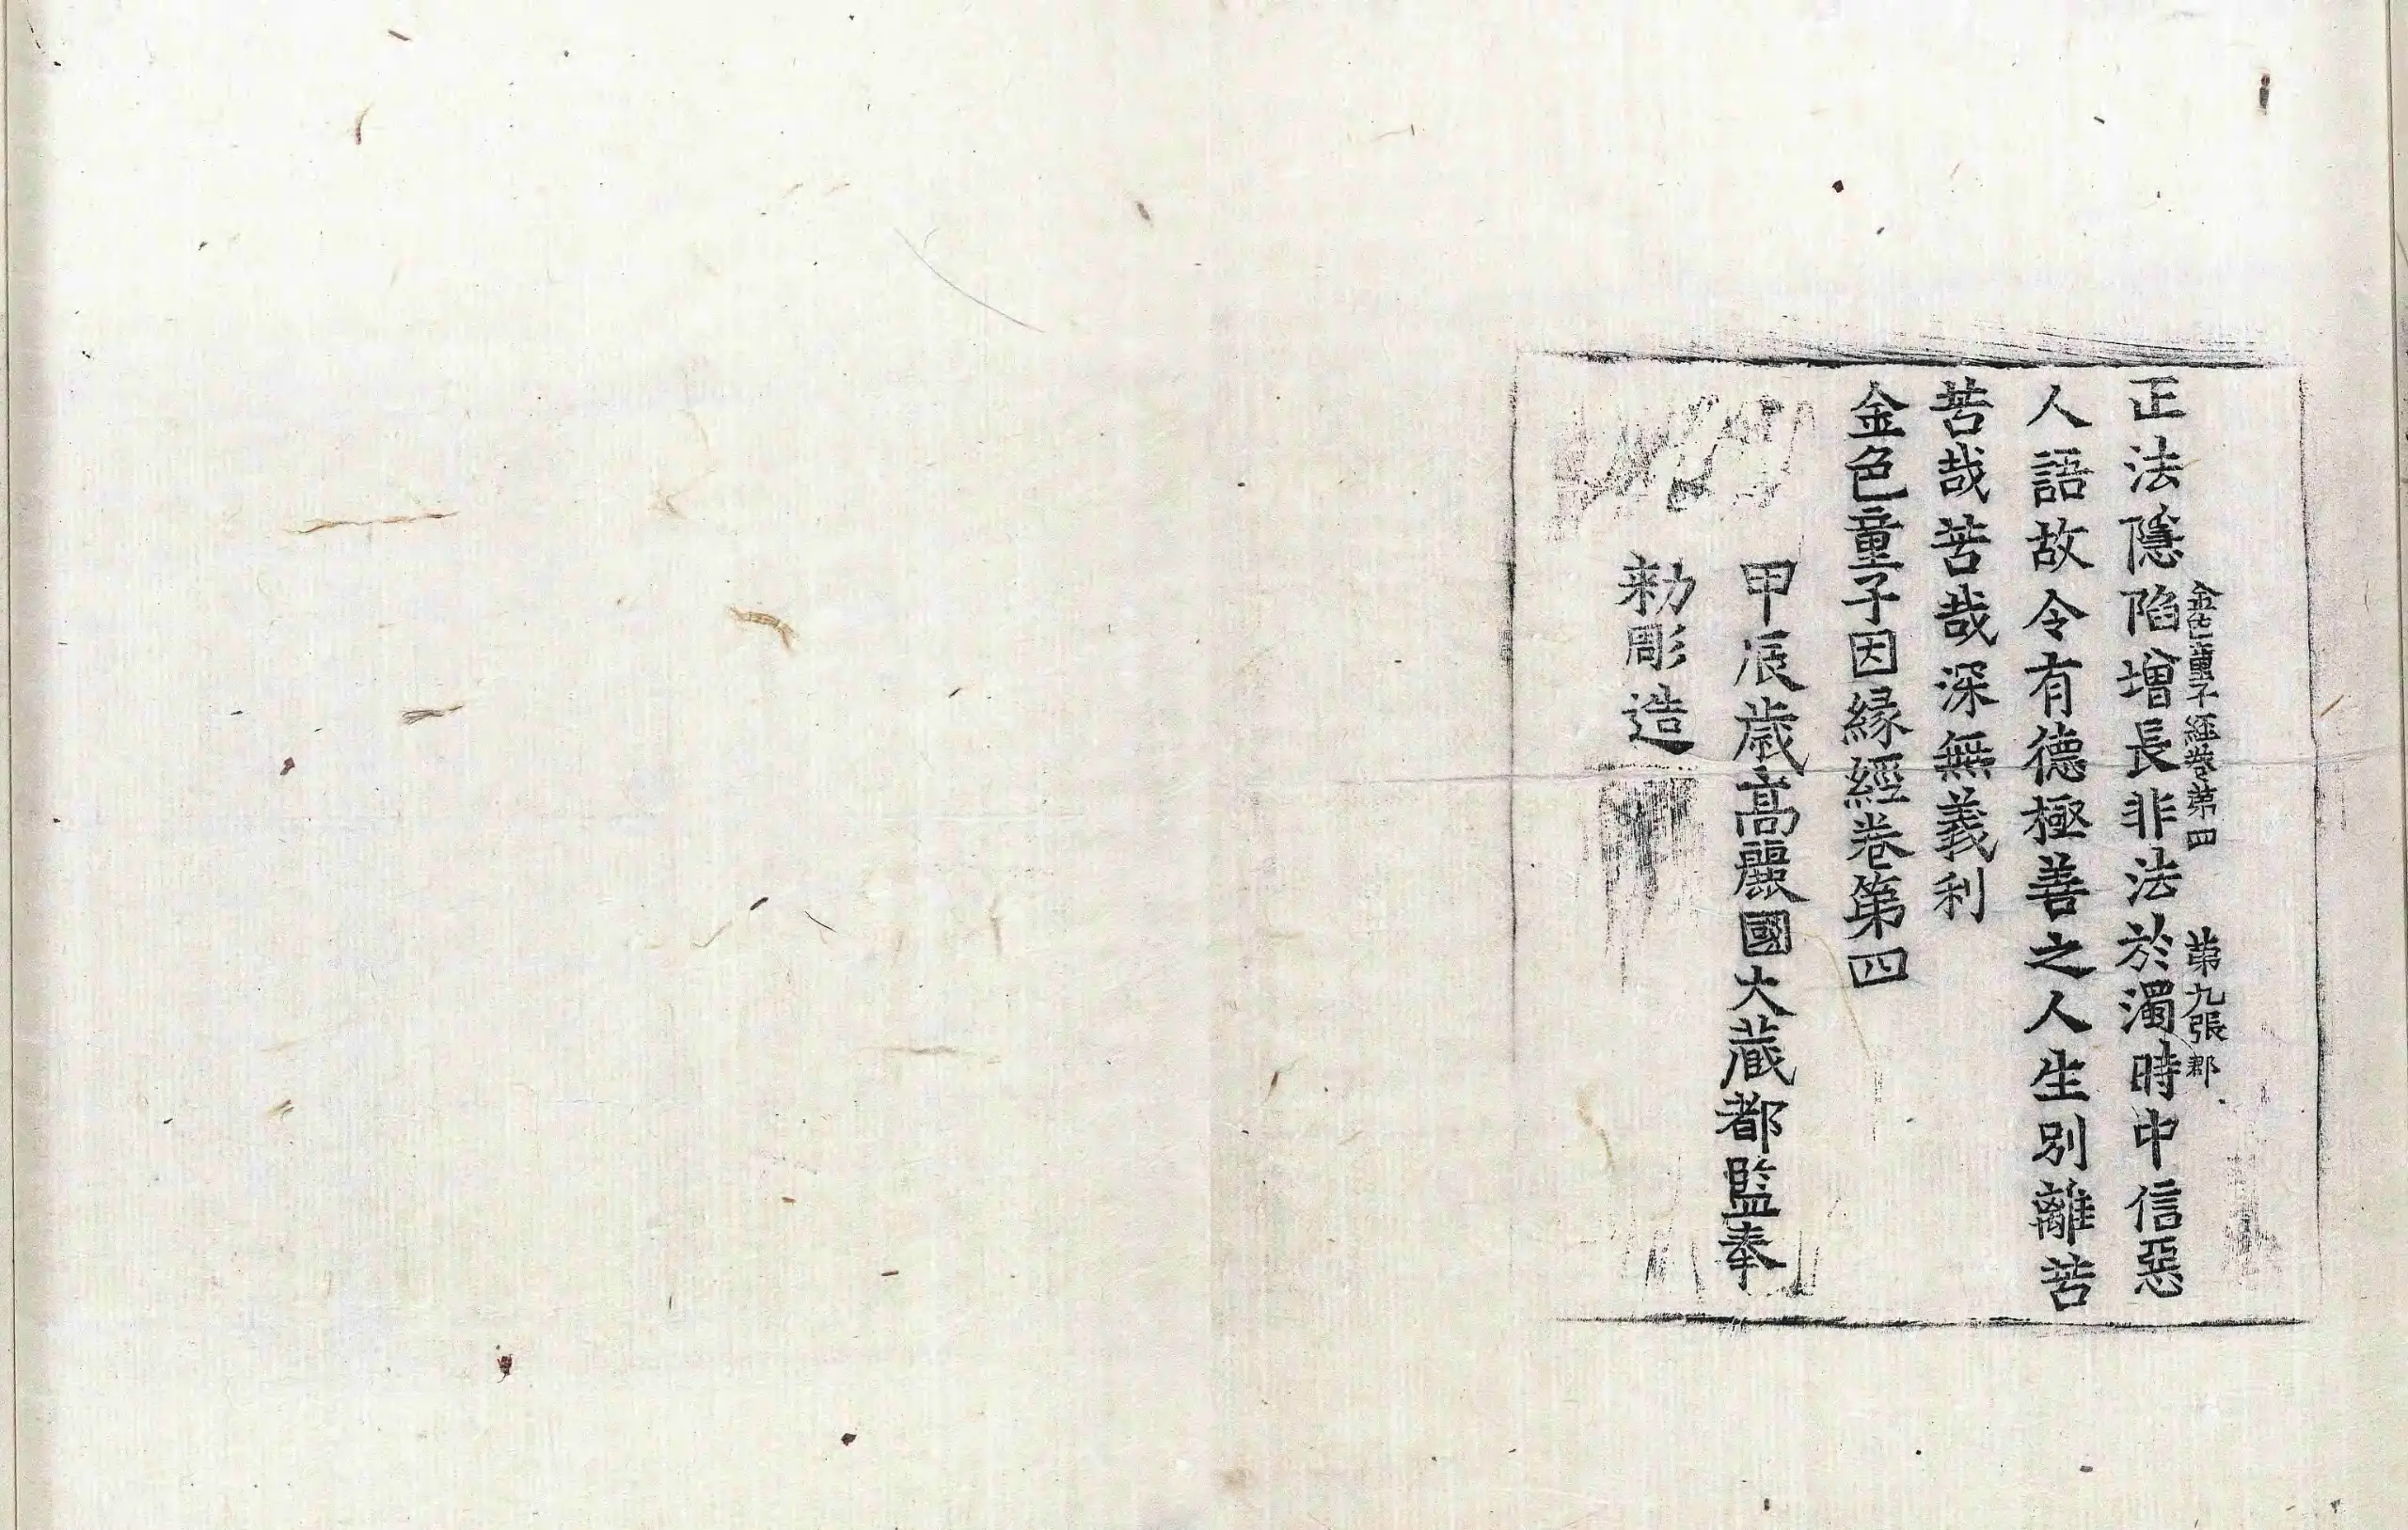 金色童子經卷第四 第九張 郡
正法隱陷增長非法於濁時中信惡
人語故令有德極善之人生別離苦
苦哉苦哉深無義利
金色童子因緣經卷第四
甲辰歲高麗國大藏都監奉
勑彫造